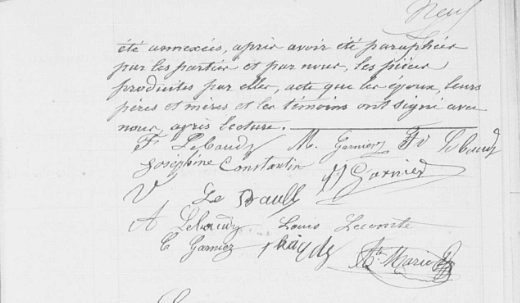 Neuf
été annexées, après avoir été paraphées
par les parties et par nous, les pièces
produites par elles, acte que les époux, leurs
pères et mères et les témoins ont signé avec
nous, après lecture.
F Lebaudy M. Garnier Fd Lebaudy
Joséphine Constantin JJ Garnier
V
A Lebaudy Louis Lecomte
C Garnier
Marie